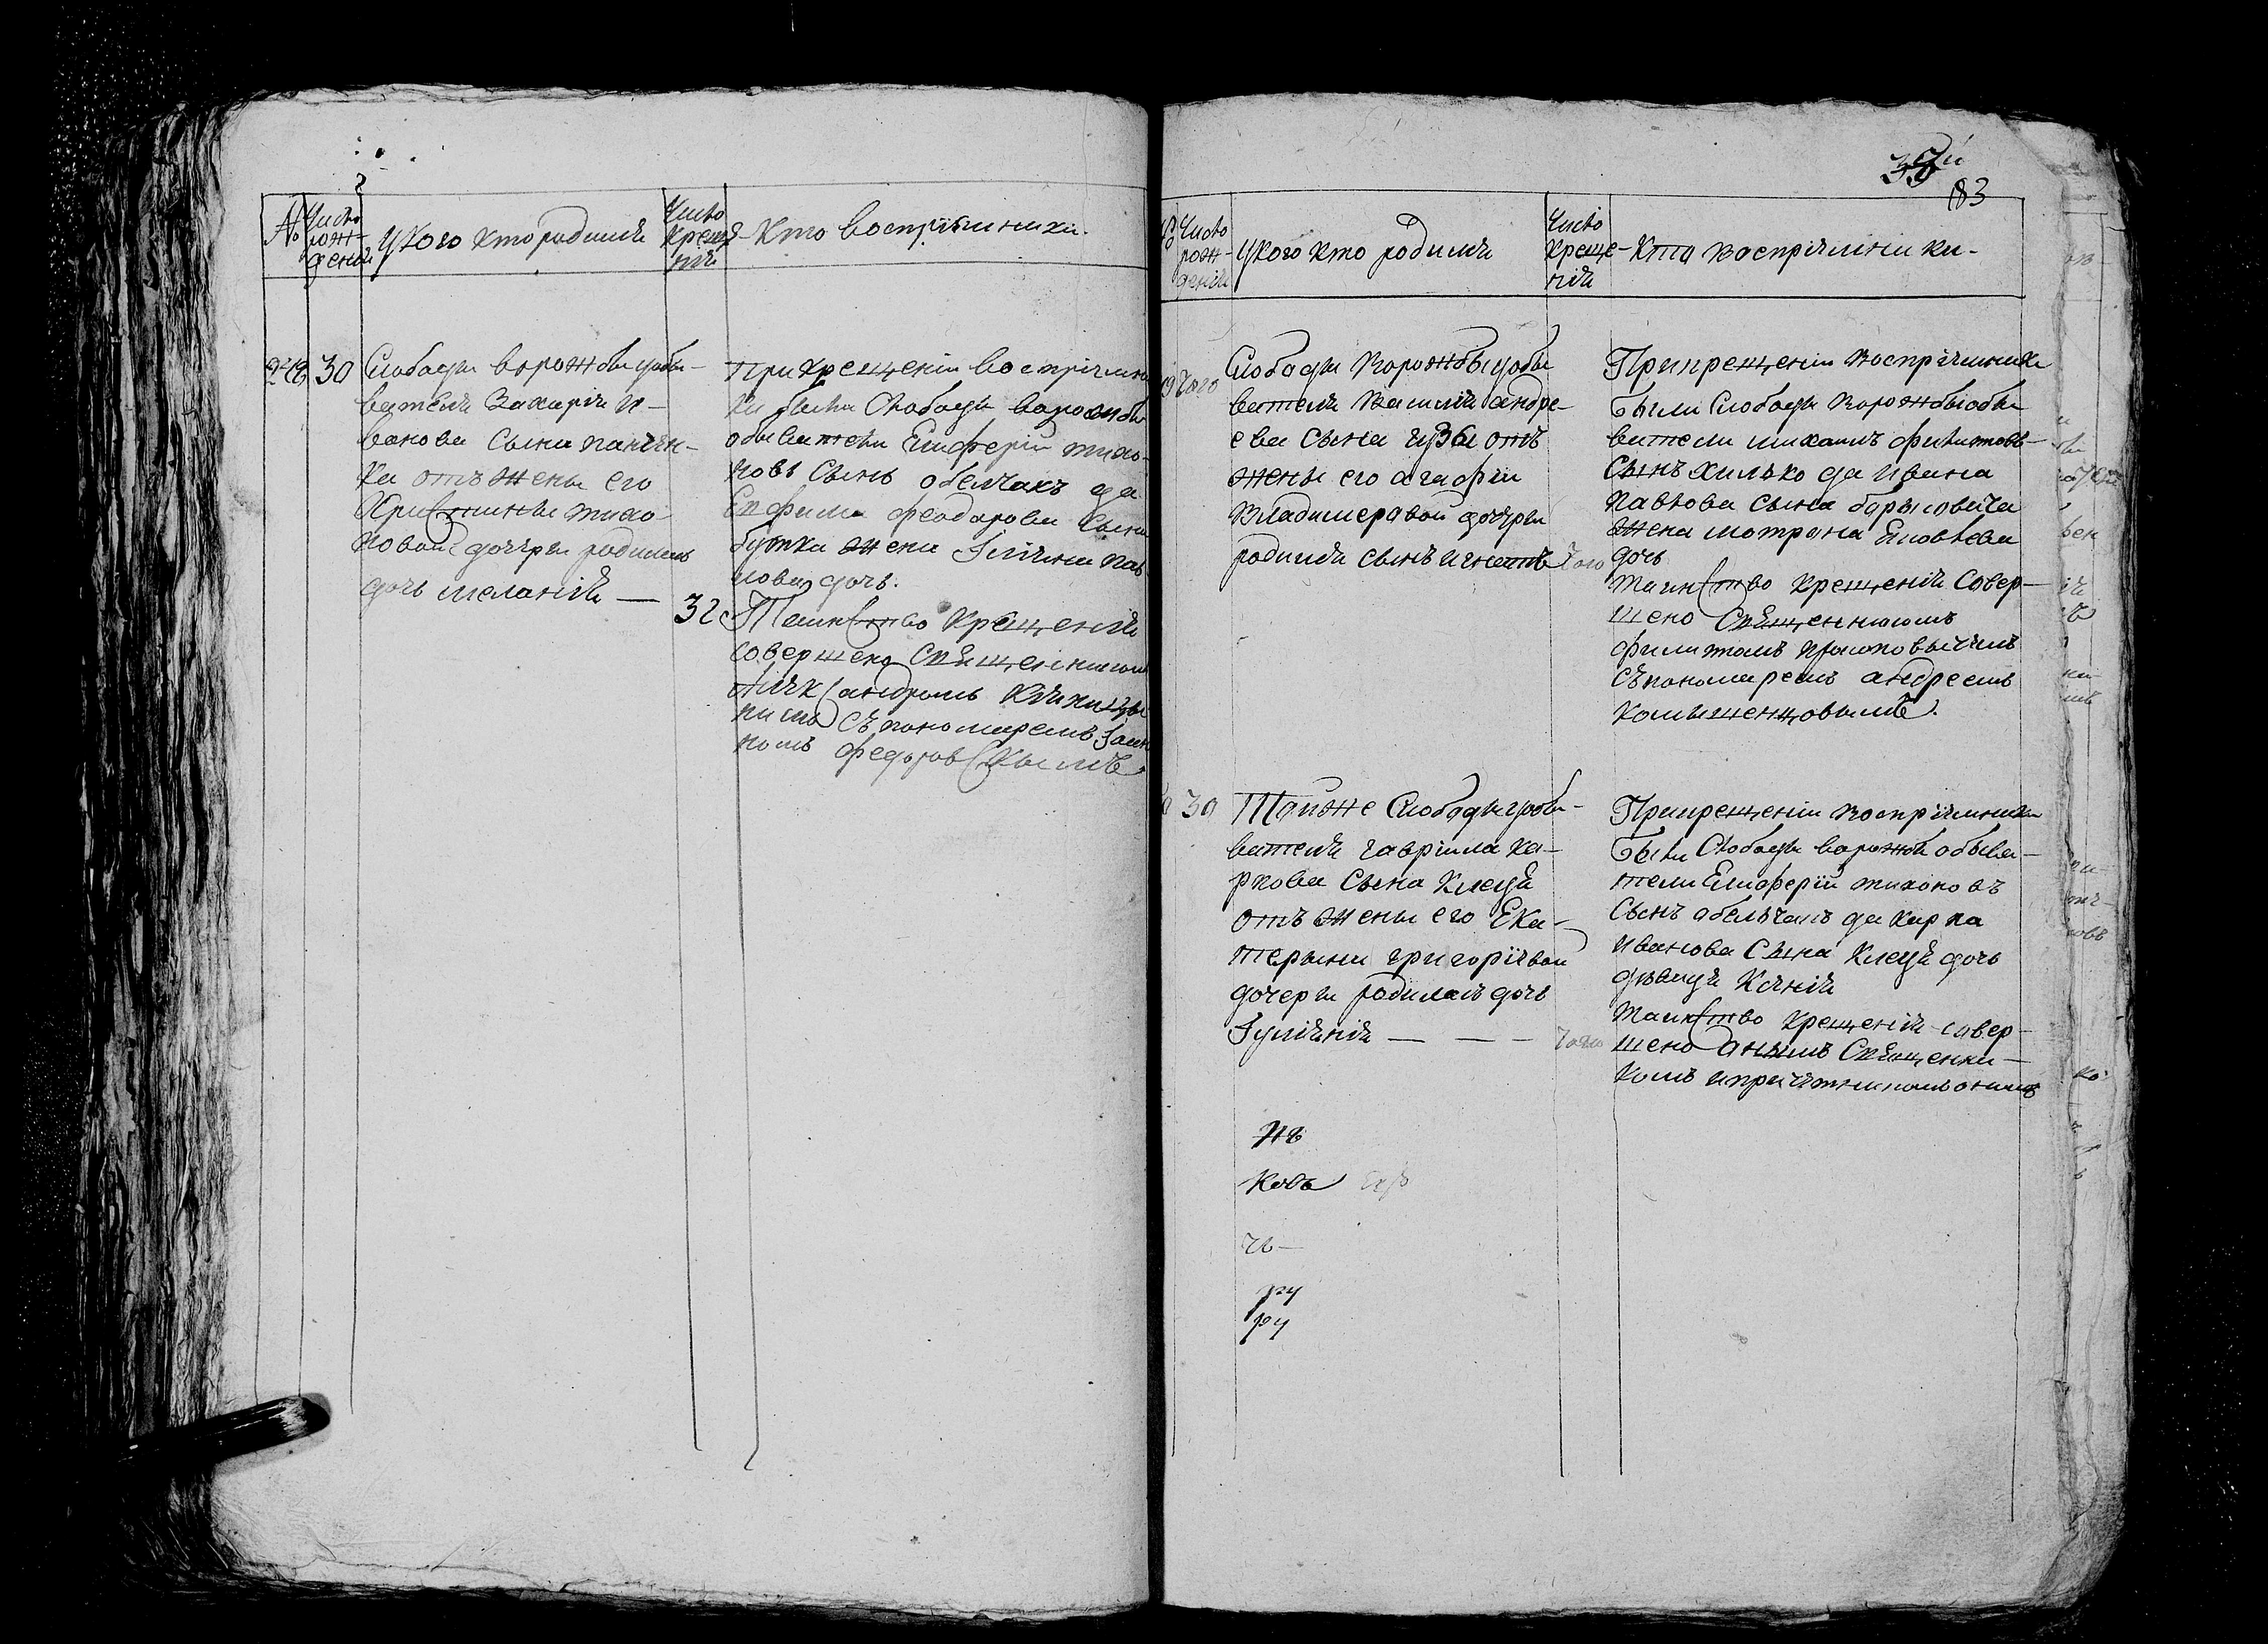 №
Число
рож-
денія
У кого кто родился
Число
креще-
нія
Кто воспріемники.
30
Слободы ворожбы у обы-
вателя Захарія И-
ванова сына
ки отъ жены его
Христины тихо-
новой дочери родилась
дочь Меланія —
32
При крещеніи воспріемни
ки были Слободы ворожбы
обыватели Елиферій тихо-
новъ Сынъ обелчакъ да
Ефима феодорова Сына
бутка жена Іуліана пав
лова дочь.
Таинство крещенія
совершено Священникомъ
Александромъ
съ пономаремъ Іоан
номъ федоровскимъ
39
83
Число
рож-
денія
У кого кто родился
Число
креще-
нія
Кто воспріемники-
того
Слободы Ворожбы у обы
вателя Василія андре-
ева Сына гузя отъ
жены его агафіи
Владимеровой дочери
родился сынъ игнатъ
того
При крещеніи воспріемники
были Слободы Ворожбы обы
ватели михаилъ филиповъ
Сынъ хилько да ивана
павлова сына борысовича
жена мотрона Яковлева
дочь
таинство крещенія совер-
шено Священникомъ
филипомъ
съ пономаремъ андреемъ
30
Той же Слободы у обы-
вателя гавріила ка-
рпова Сына Клеця
отъ жены его Ека-
терыни григоріевой
дочери родилась дочь
Іуліанія — — —
того
При крещеніи воспріемники
были Слободы ворожбы обыва-
тели Елиферій тихоновъ
Сынъ обельчакъ да карпа
иванова Сына Клеця дочь
дѣвица Ксенія
таинство крещенія совер-
шено онымъ Священни-
комъ и причетникомъ онымъ
нъ
ковъ
го—
ру
ру